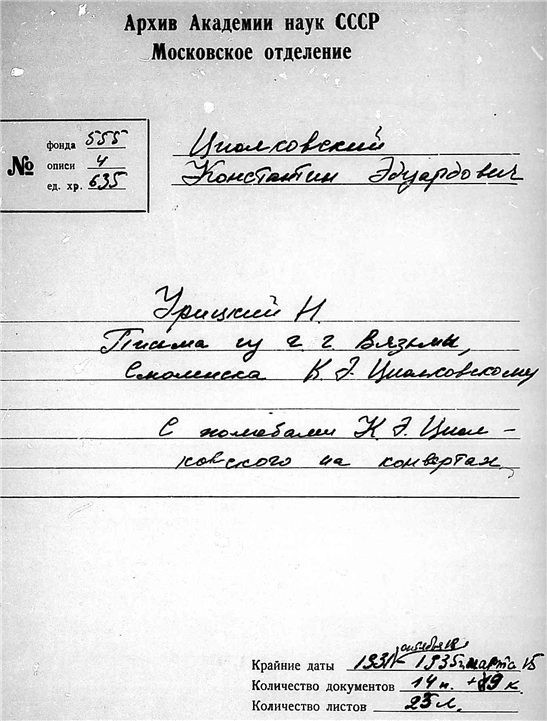 Архив Академии наук СССР
Московское отделение
№
фонда 555
описи 4
ед. хр. 635
Циолковский
Константин Эдуардович
Урицкий Н.
Письма из г. г Вязьмы,
Смоленска К. Э. Циолковскому
С пометами К. Э. Циол-
ковского на конвертах
октября 18
Крайние даты 1931 - 1935 марта 15
Количество документов 14 п. + 9 к.
Количество листов 25 л.